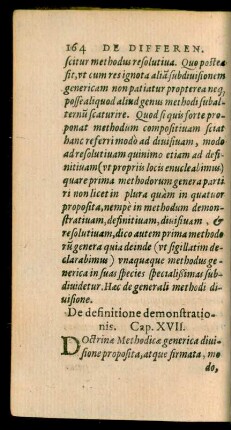 164 DE DIFFEREN.
scitur methodus resolutiua. Quo postea
sit, vt cum res ignota aliã subdiuisionem
genericam non patiatur propterea neq,
posse aliquod aliud genus methodi subal-
ternũ scaturire. Quod si quis forte pro-
ponat methodum compositiuam sciat
hanc referri modò ad diuisiuam, modo
ad resolutiuam quinimo etiam ad defi-
nitiuam (vt propriis locis enucleabimus)
quare prima methodorum genera parti
ri non licet in plura quàm in quatuor
proposita, nempè in methodum demon-
stratiuam, definitiuam, diuisiuam, &
resolutiuam, dico autem prima methodo
rũ genera quia deinde (vt sigillatim de-
clarabimus) vnaquaque methodus ge-
nerica in suas species specialissimas sub-
diuidetur. Hac de generali methodi di-
uisione.
De definitione demonstratio-
nis. Cap. XVII.
DOctrinæ Methodicæ generica diui-
sione proposita, atque firmata, mo
do,